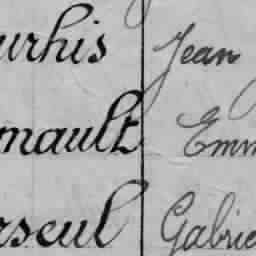 urhis Jean
mault Emm
rseul Gabrie